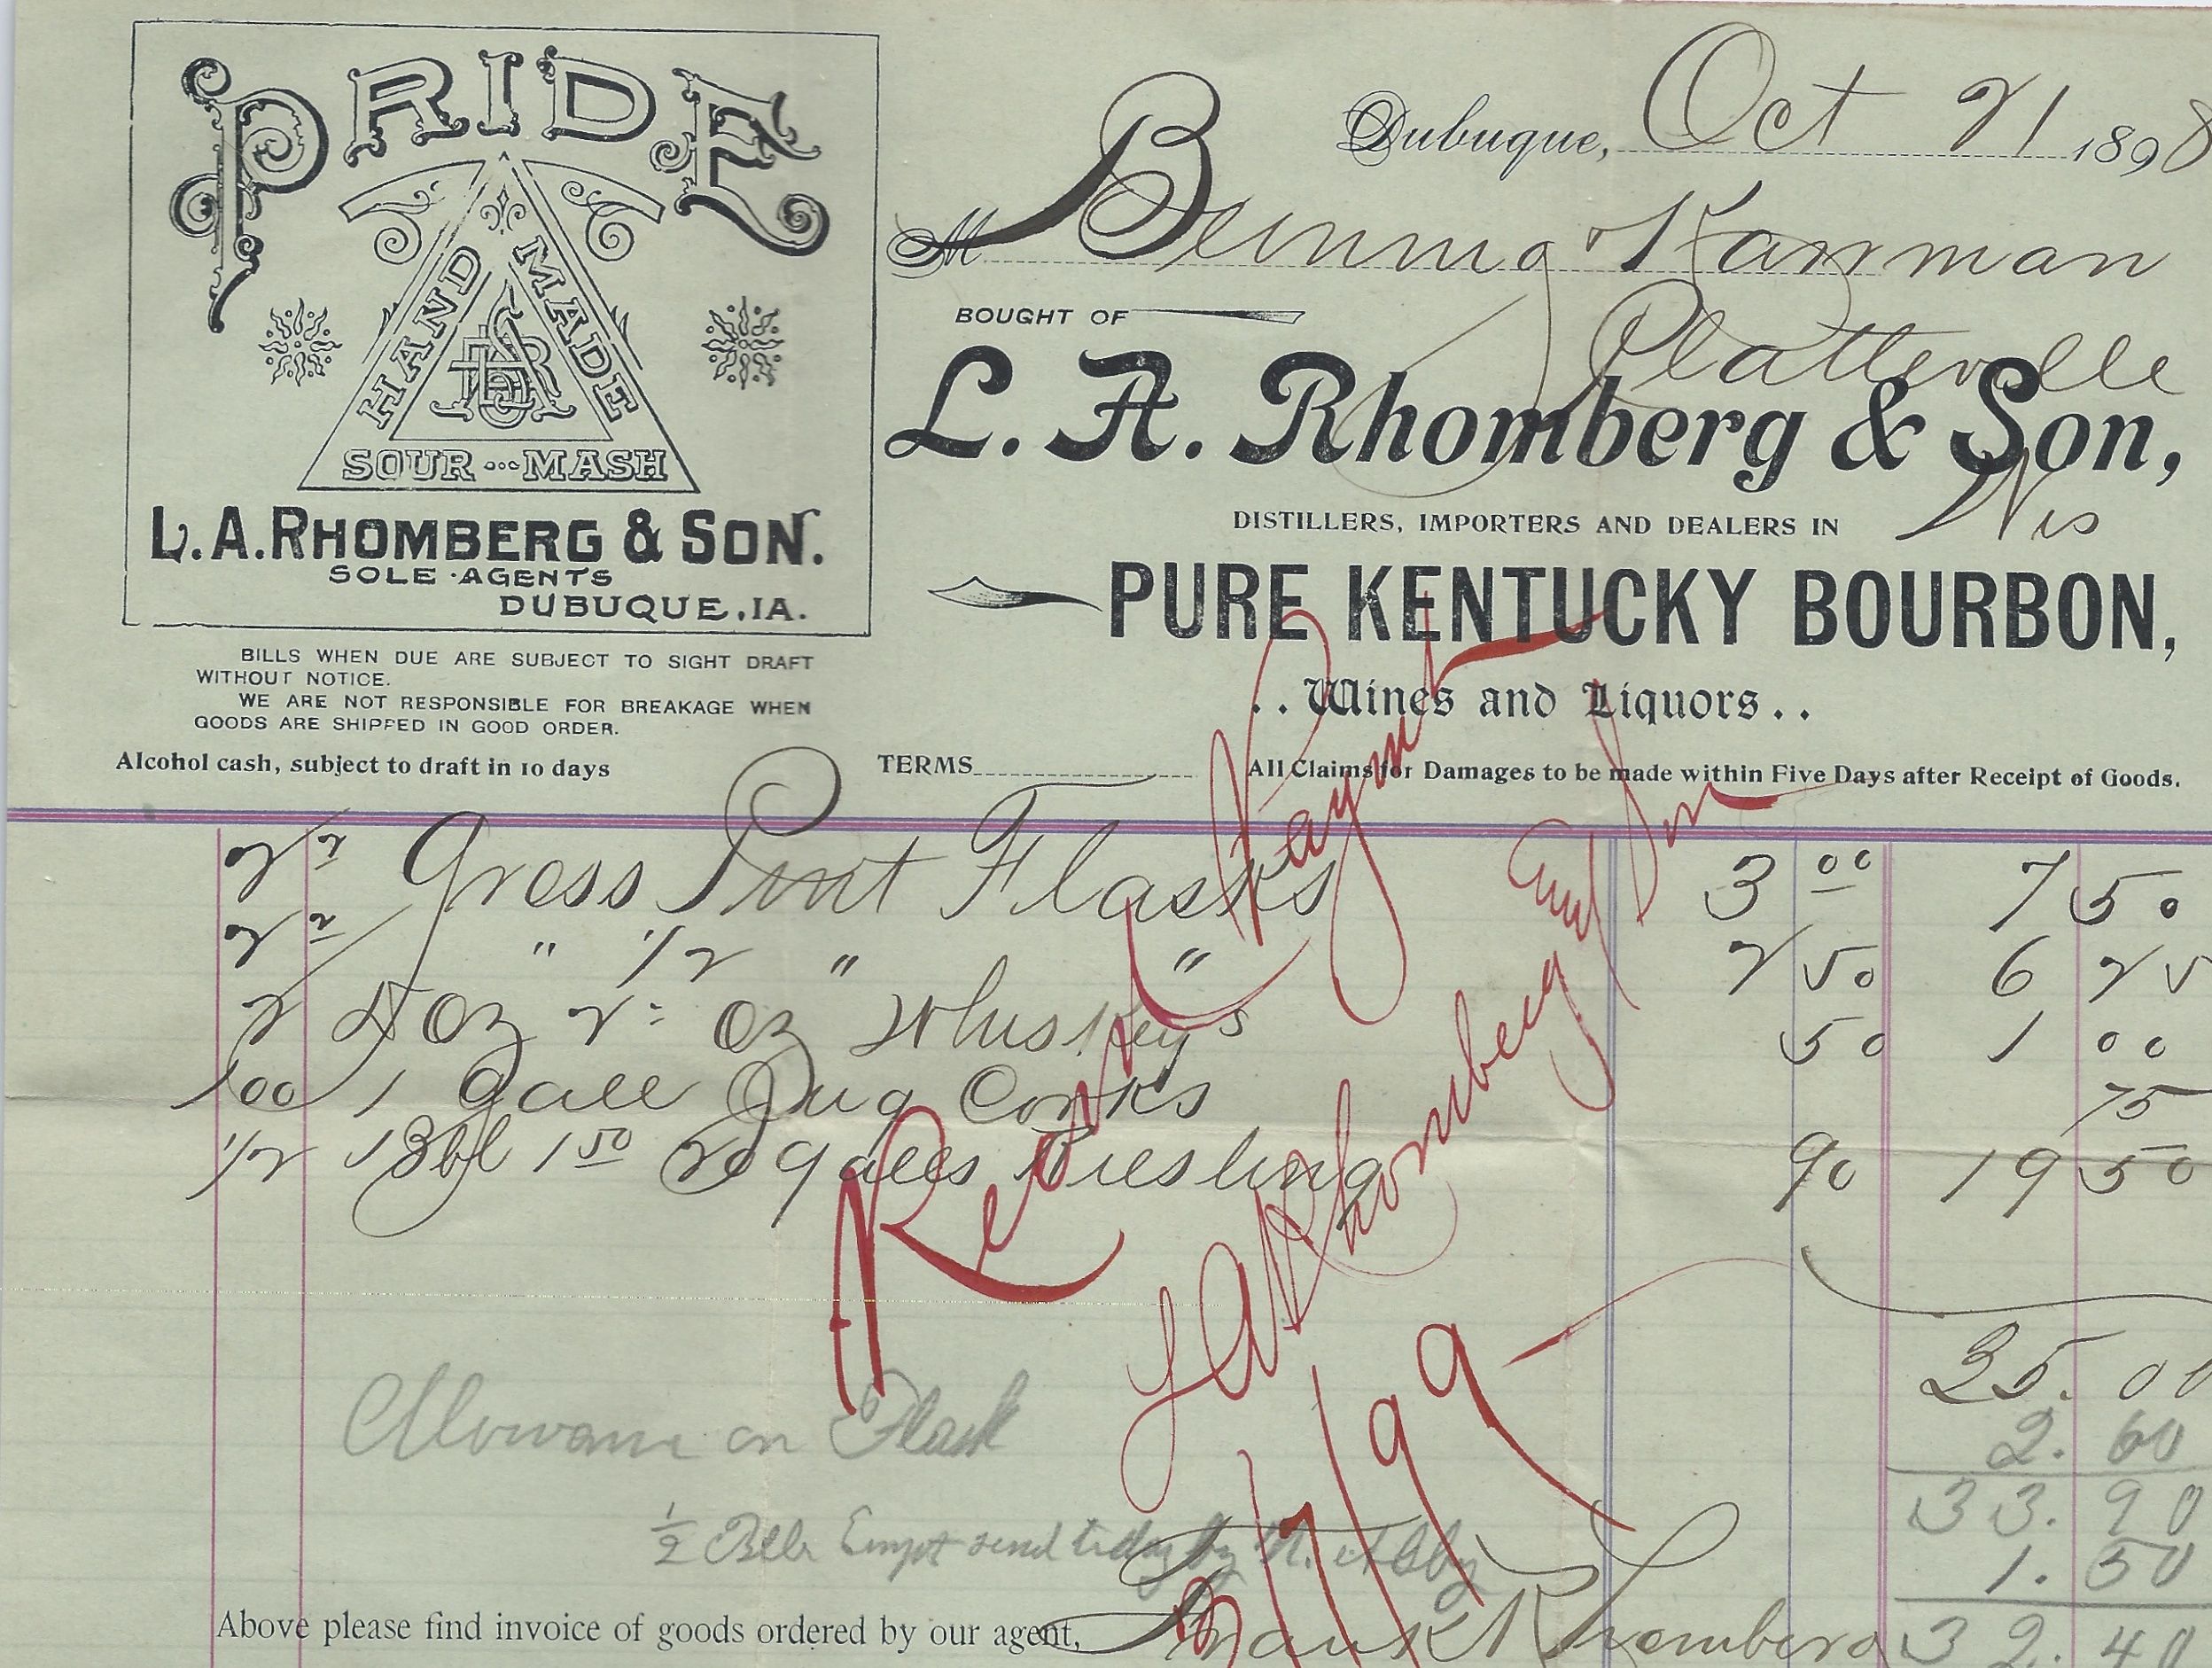 PRIDE
HAND MADE
SOUR MASH
L.A. RHOMBERG & SON.
SOLE AGENTS
DUBUQUE, IA.
BILLS WHEN DUE ARE SUBJECT TO SIGHT DRAFT
WITHOUT NOTICE.
WE ARE NOT RESPONSIBLE FOR BREAKAGE WHEN
GOODS ARE SHIPPED IN GOOD ORDER.
Alcohol cash, subject to draft in 10 days
Dubuque, Oct 21 1898
M Karrman
Platteville
Wis
BOUGHT OF
L. A. Rhomberg & Son,
DISTILLERS, IMPORTERS AND DEALERS IN
PURE KENTUCKY BOURBON,
..Wines and Liquors..
TERMS
All Claims for Damages to be made within Five Days after Receipt of Goods.
Gross Pint Flasks 3 00 7 50
" 1/2 " " 2 50 6 25
2 oz 2 oz Whiskeys 50 1 00
100 1 Gall Jug Corks 75
1/2 Bbl 1 50 20 galls Riesling 90 19 50
35.00
Payment
L A Rhomberg and Son
/7/99
on Flask 2.60
33.90
1/2 by 1.50
32.40
Above please find invoice of goods ordered by our agent, Frank Rhomberg